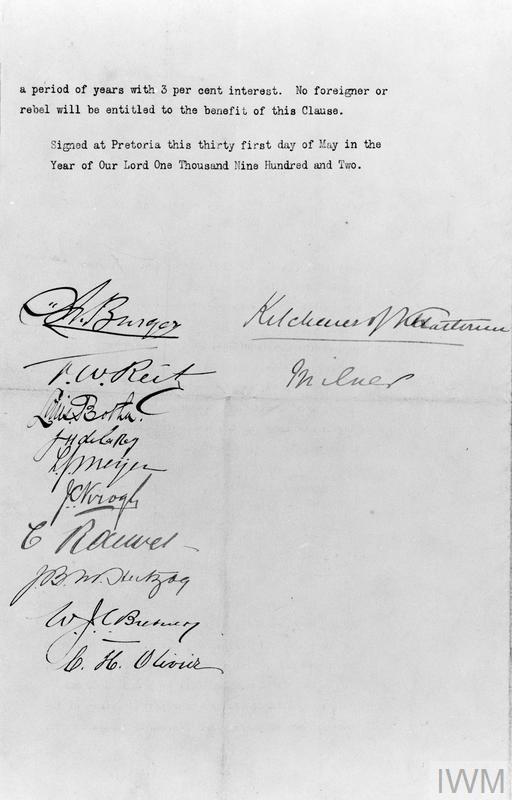 a period of years with 3 per cent interest. No foreigner or
rebel will be entitled to the benefit of this Clause.
Signed at Pretoria this thirty first day of May in the
Year of Our Lord One Thousand Nine Hundred and Two.
Burger
Kitchener of Khartoum
F. W. Reitz
Milner
Louis Botha.
J H de la Rey
L. J. Meyer
J C Krogh
C R de Wet
J. B. M. Hertzog
W. J. C. Brebner
C. H. Olivier
IWM